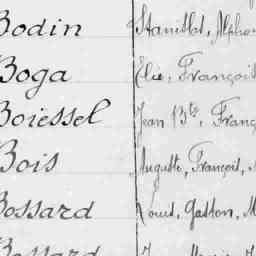 Bodin Stanislas, Alphon
Boga Élie, François
Boiessel Jean Bte, Franç
Bois Auguste, François,
Bossard Louis, Gaston, M
Bossard